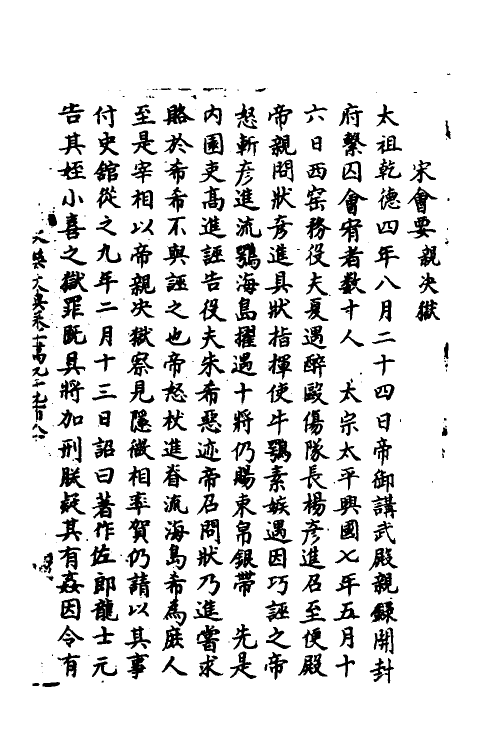 宋會要 親决獄
太祖乾德四年八月二十四日帝御講武殿親録開封
府繫囚會宥者数十人 太宗太平興國七年五月十
六日西窑務役夫夏遇醉毆傷隊長楊彦進召至便殿
帝親問狀彦進具狀指揮使牛鶚素嫉遇因巧誣之帝
怒斬彦進流鶚海島擢遇十將仍賜束帛銀帶 先是
内園吏高進誣告役夫朱希惡迹帝召問狀乃進嘗求
賂於希希不與誣之也帝怒杖進脊流海島希爲庶人
至是宰相以帝親决獄察見隱微相率賀仍請以其事
付史舘從之九年二月十三日詔曰著作佐郎龍士元
告其姪小喜之獄罪既具將加刑朕疑其有姦因令有